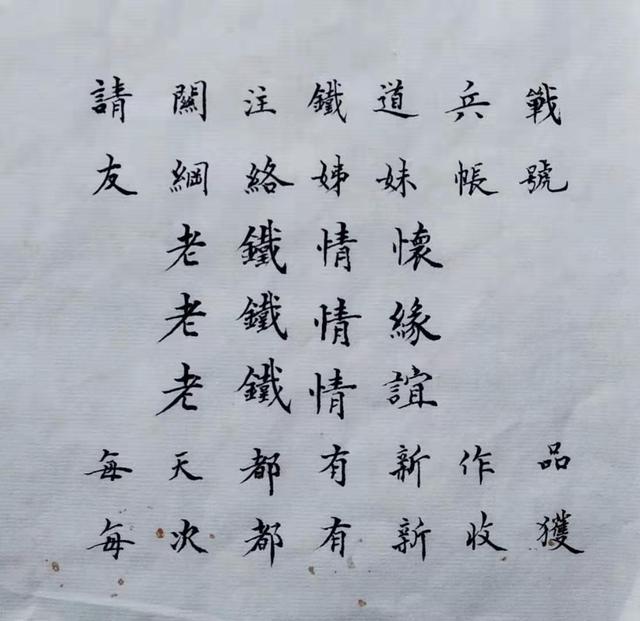 請關注鐵道兵戰
友網絡姊妹帳號
老鐵情懷
老鐵情緣
老鐵情誼
每天都有新作品
每次都有新收獲